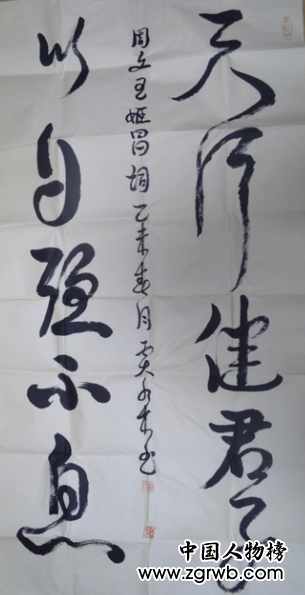 天行健君子
以自强不息
周文王姬昌词乙未春月贾
中国人物榜
www.zgrwb.com